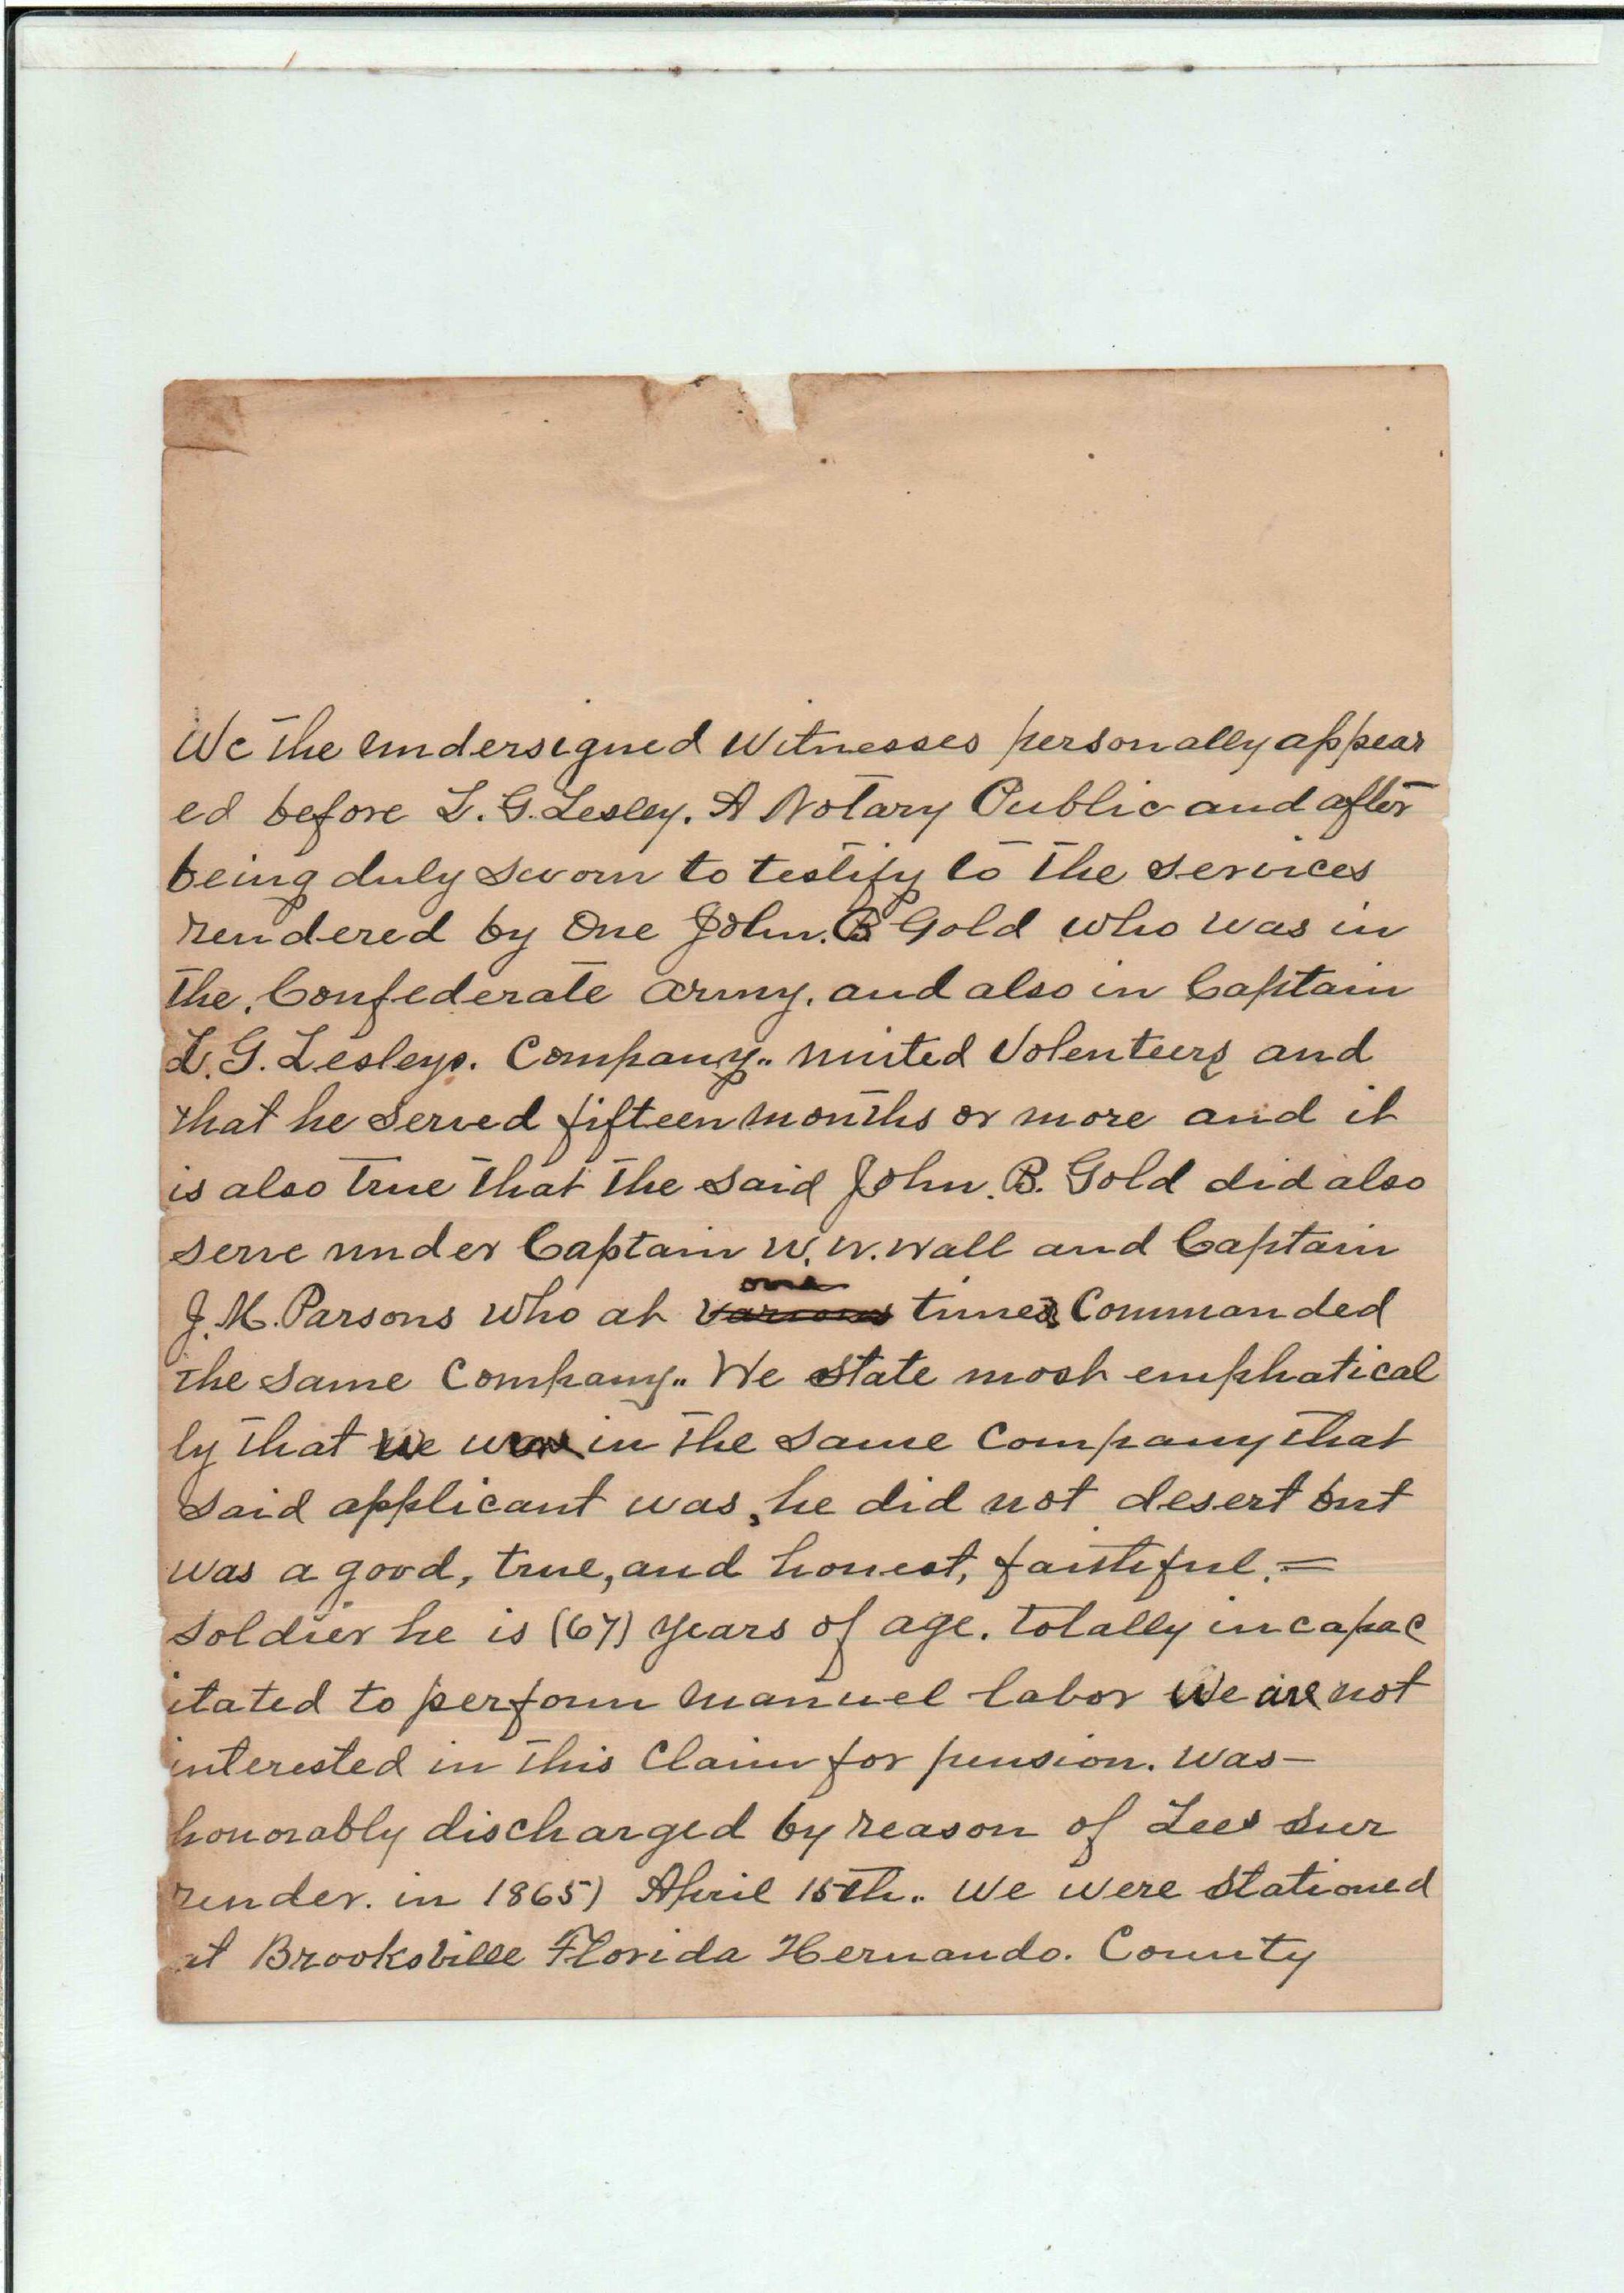 We the undersigned Witnesses personally appear
ed before L. G. Lesley. A Notary Public and after
being duly sworn to testify to the services
rendered by One John. B Gold who was in
the. Confederate army. and also in Captain
L. G. Lesleys. Company.. mited Volenteers and
that he served fifteen months or more and it
is also true that the said John. B. Gold did also
serve under Captain W. W. Wall and Captain
one
J. M. Parsons who at various times Commanded
the same Company.. We state most emphatical
ly that we was in the same Company that
said applicant was, he did not desert but
was a good, true, and honest, faithful. =
soldier he is (67) years of age. totally incapac
itated to perform manuel labor We are not
interested in this Claim for pension. was —
honorably discharged by reason of Lees sur
render. in 1865) April 15th.. We were stationed
at Brooksville Florida Hernando. County